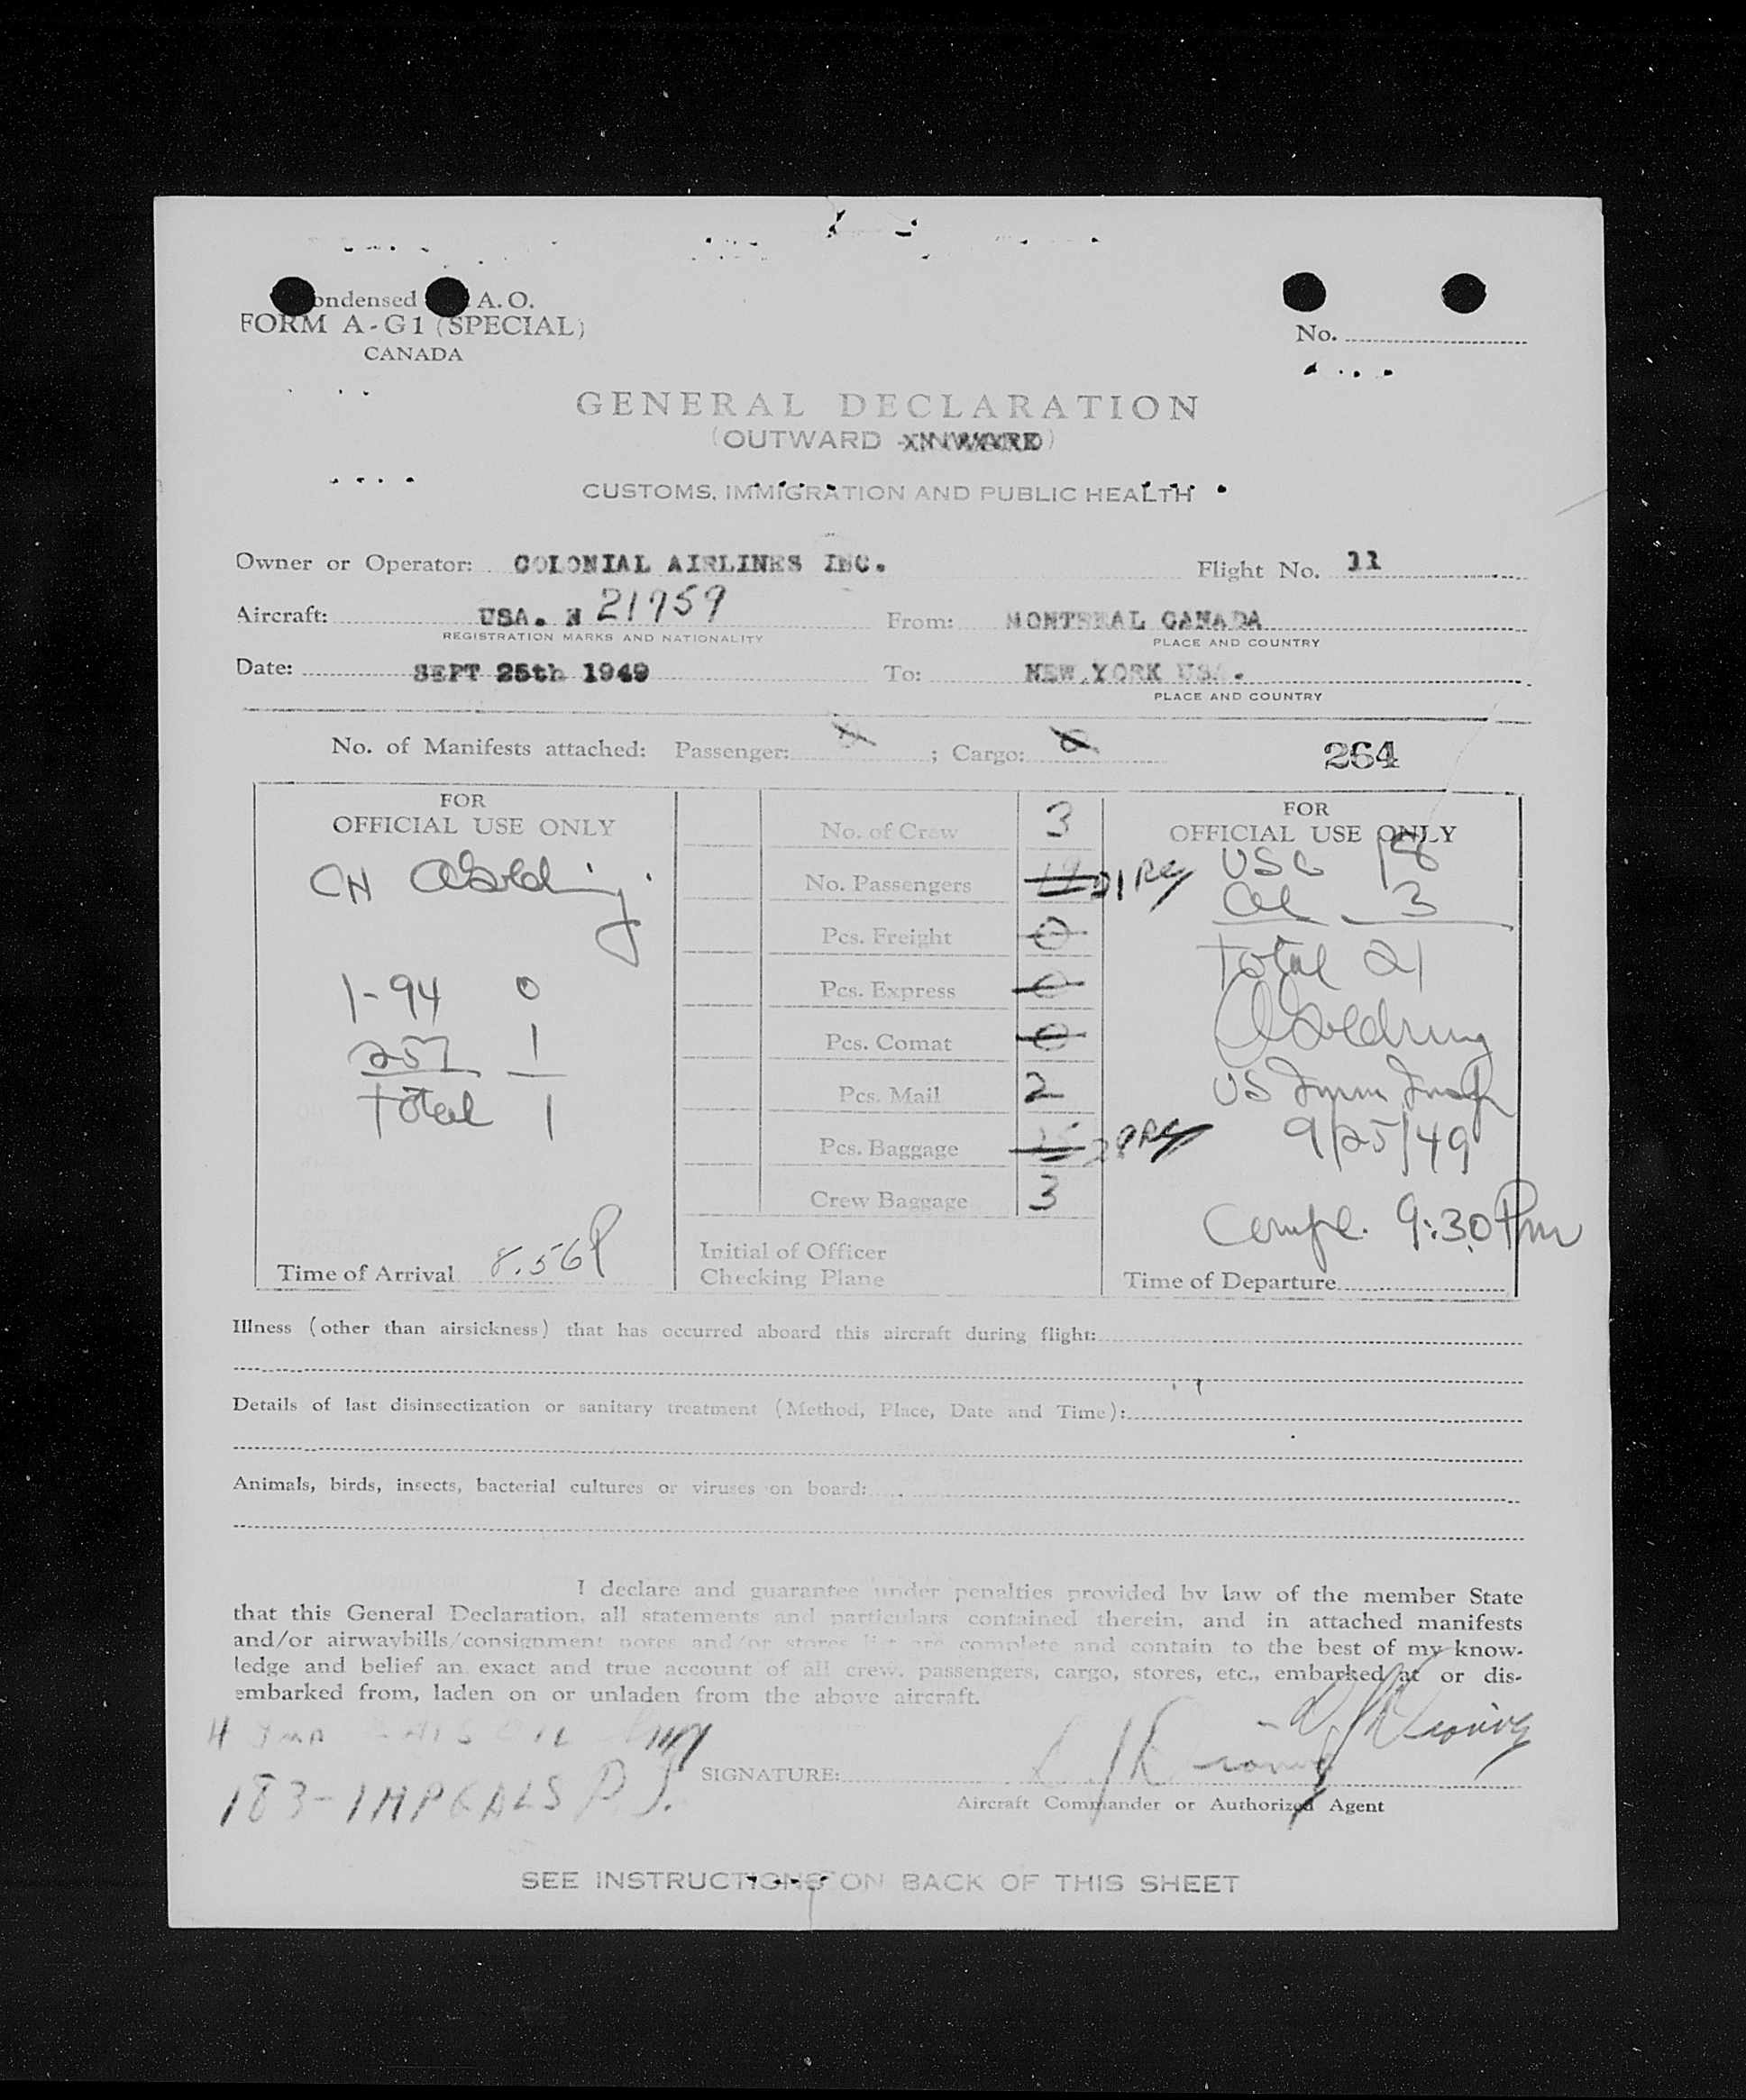 ondensed A. O.
FORM A-G1 (SPECIAL)
CANADA
No.
GENERAL DECLARATION
(OUTWARD
CUSTOMS, IMMIGRATION AND PUBLIC HEALTH
Owner or Operator: COLONIAL AIRLINES INC. Flight No. 11
Aircraft: USA. N 21759 From: MONTREAL CANADA
REGISTRATION MARKS AND NATIONALITY PLACE AND COUNTRY
Date: SEPT 25th 1949 To: NEW YORK USA.
PLACE AND COUNTRY
No. of Manifests attached: Passenger: ; Cargo: 0 264
FOR
OFFICIAL USE ONLY
CH
1-94 0
257 1
Total 1
Time of Arrival 8.56P
No. of Crew 3
No. Passengers 21
Pcs. Freight 0
Pcs. Express 0
Pcs. Comat 0
Pcs. Mail 2
Pcs. Baggage 28
Crew Baggage 3
Initial of Officer
Checking Plane
FOR
OFFICIAL USE ONLY
USC 18
al 3
Total 21
US Imm Insp
9/25/49
Compl. 9:30 Pm
Time of Departure
Illness (other than airsickness) that has occurred aboard this aircraft during flight:
Details of last disinsectization or sanitary treatment (Method, Place, Date and Time):
Animals, birds, insects, bacterial cultures or viruses on board:
I declare and guarantee under penalties provided by law of the member State
that this General Declaration, all statements and particulars contained therein, and in attached manifests
and/or airwaybills/consignment notes and/or stores list are complete and contain to the best of my know-
ledge and belief an exact and true account of all crew, passengers, cargo, stores, etc., embarked at or dis-
embarked from, laden on or unladen from the above aircraft.
183-
SIGNATURE:
Aircraft Commander or Authorized Agent
SEE INSTRUCTIONS ON BACK OF THIS SHEET